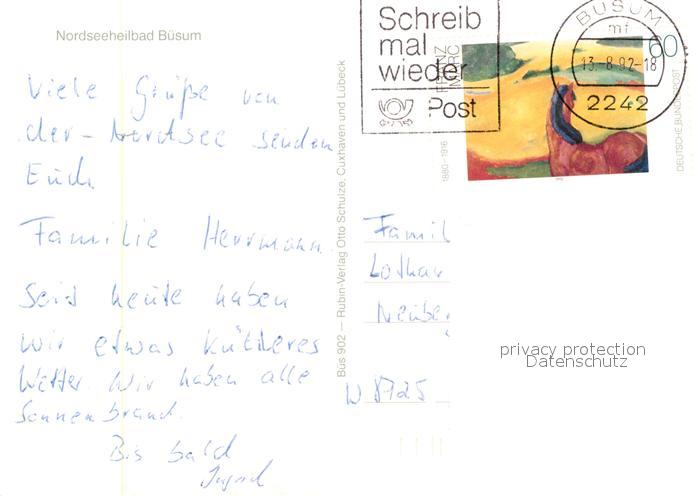 Nordseeheilbad Büsum
Viele Grüße von
der Nordsee senden
Euch
Familie Herrmann.
Seid heute haben
wir etwas kühleres
Wetter. Wir haben alle
Sonnenbrand.
Bis bald
Büs 902 — Rubin-Verlag Otto Schulze, Cuxhaven und Lübeck
Schreib
mal
wieder
Post
BÜSUM
mf
13.-8.92-18
2242
60
FRANZ
MARC
1880–1916
DEUTSCHE BUNDESPOST
Famil
Lothar
W 8725
privacy protection
Datenschutz